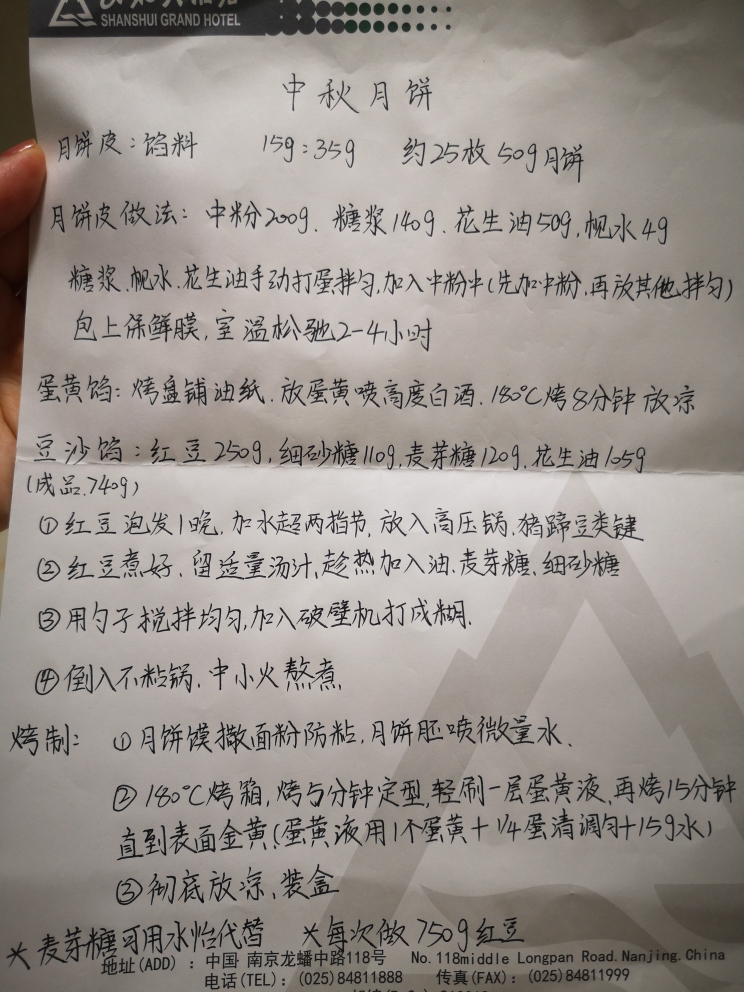 SHANSHUI GRAND HOTEL
中秋月饼
月饼皮：馅料 15g：35g 约25枚50g月饼
月饼皮做法：中粉200g、糖浆140g、花生油50g，枧水4g
糖浆、枧水、花生油手动打蛋拌匀，加入中粉中（先加中粉，再放其他拌匀）
包上保鲜膜，室温松驰2-4小时
蛋黄馅：烤盘铺油纸、放蛋黄喷高度白酒、180℃烤8分钟放凉
豆沙馅：红豆250g，细砂糖110g，麦芽糖120g、花生油105g
（成品740g）
①红豆泡发1晚，加水超两指节，放入高压锅、猪蹄豆类键
②红豆煮好、留适量汤汁，趁热加入油、麦芽糖、细砂糖
③用勺子搅拌均匀，加入破壁机打成糊.
④倒入不粘锅、中小火熬煮
烤制：①月饼馍撒面粉防粘，月饼胚喷微量水、
②180℃烤箱，烤5分钟定型，轻刷一层蛋黄液、再烤15分钟
直到表面金黄（蛋黄液用1个蛋黄+1/4蛋清调匀+15g水）
③彻底放凉、装盒
*麦芽糖可用水怡代替 *每次做750g红豆
地址(ADD)：中国 南京龙蟠中路118号 No.118middle Longpan Road.Nanjing.China
电话(TEL)：(025)84811888 传真(FAX)：(025)84811999